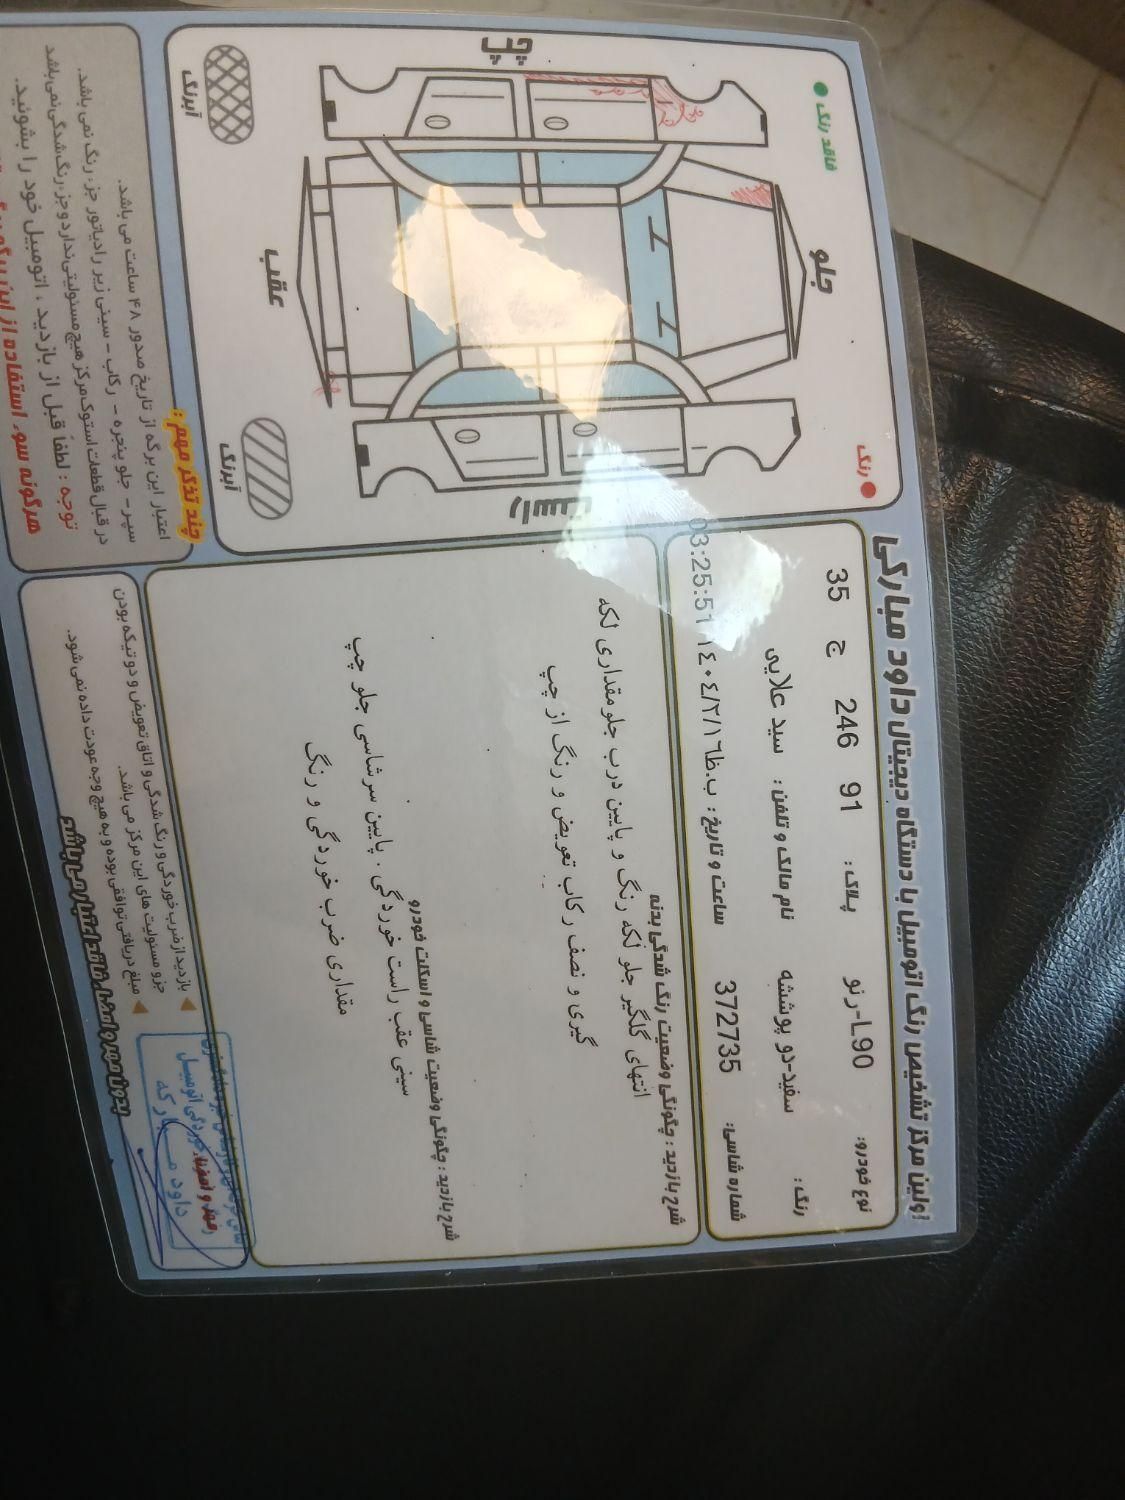 اولین مرکز تشخیص رنگ اتومبیل با دستگاه دیجیتال داود مبارکی
نوع خودرو: رنو-L90
پلاک: 91 246 ج 35
رنگ: سفید-دو پوششه
نام مالک و تلفن: سید علایی
شماره شاسی: 372735
ساعت و تاریخ: ١٤٠٤/٢/١٦ ب.ظ 03:25:51
شرح بازدید: چگونگی وضعیت رنگ شدگی بدنه
انتهای گلگیر جلو لکه رنگ و پایین درب جلو مقداری لکه
گیری و نصف رکاب تعویض و رنگ از چپ
شرح بازدید: چگونگی وضعیت شاسی و اسکلت خودرو
سینی عقب راست خوردگی . پایین سرشاسی جلو چپ
مقداری ضرب خوردگی و رنگ
فاقد رنگ
رنگ
جلو
چپ
راست
عقب
آبرنگ
آبرنگ
چند تذکر مهم:
اعتبار این برگه از تاریخ صدور ۴۸ ساعت می باشد.
سپر - جلو پنجره - رکاب - سینی زیر رادیاتور جزء رنگ نمی باشد.
در قبال قطعات استوک مرکز هیچ مسئولیتی ندارد و جزء رنگ شدگی نمی باشد
توجه: لطفاً قبل از بازدید، اتومبیل خود را بشوئید.
هرگونه سوء استفاده از این برگه
بازدید از ضرب خوردگی و رنگ شدگی و اتاق تعویض و دو تیکه بودن
جزو مسئولیت های این مرکز می باشد.
مبلغ دریافتی توافقی بوده و به هیچ وجه عودت داده نمی شود.
بدون مهر و امضاء فاقد اعتبار می باشد
مهر و امضاء
داود